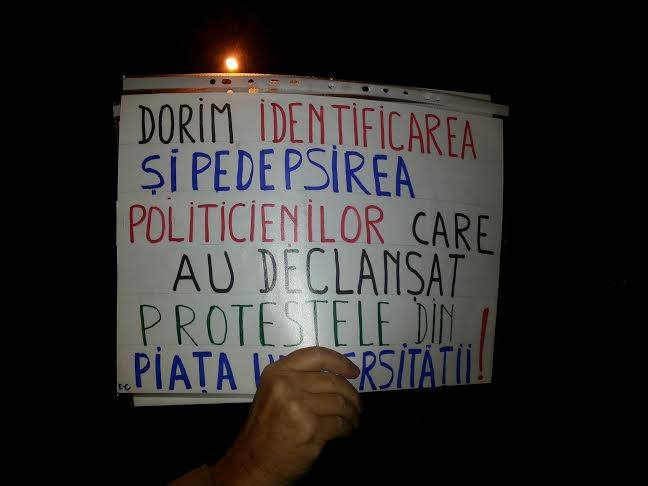 DORIM IDENTIFICAREA
ȘI PEDEPSIREA
POLITICIENILOR CARE
AU DECLANȘAT
PROTESTELE DIN
PIAȚA UNIVERSITĂȚII!
E.C